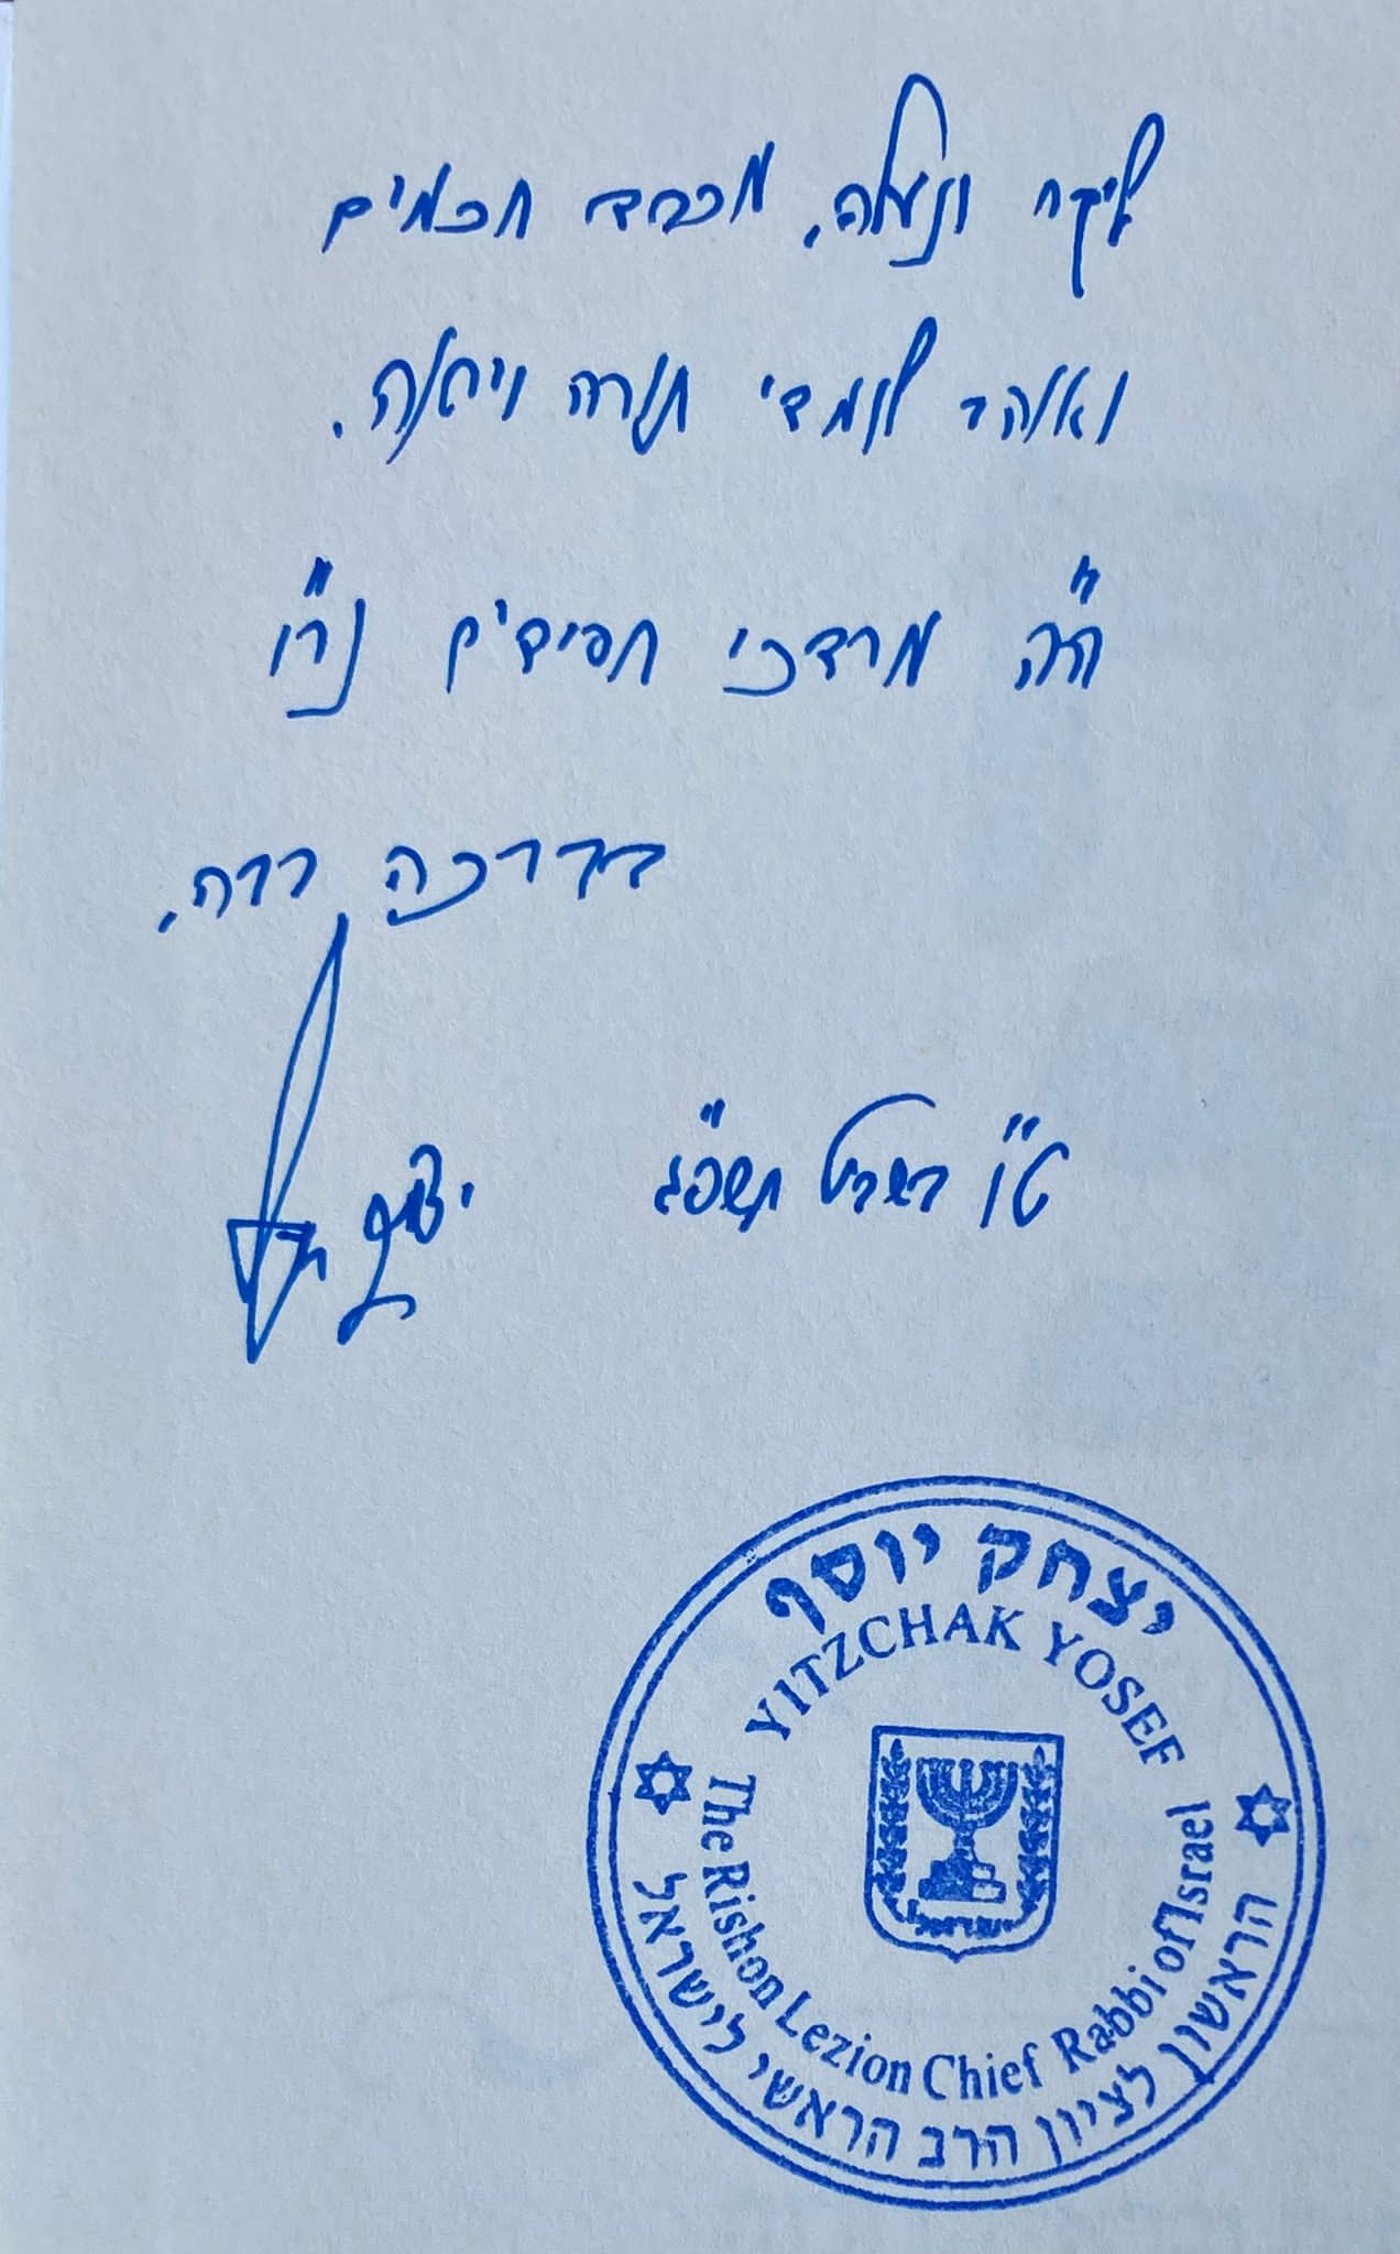 ליקר ונעלה, מכבד חכמים
ואוהב לומדי תורה ויראה.
ה"ה מרדכי חסידים נר"ו
בברכה רבה,
ט"ו בשבט תשפ"ג
יצחק יוסף
יצחק יוסף
YITZCHAK YOSEF
The Rishon Lezion Chief Rabbi of Israel
הראשון לציון הרב הראשי לישראל
ישראל